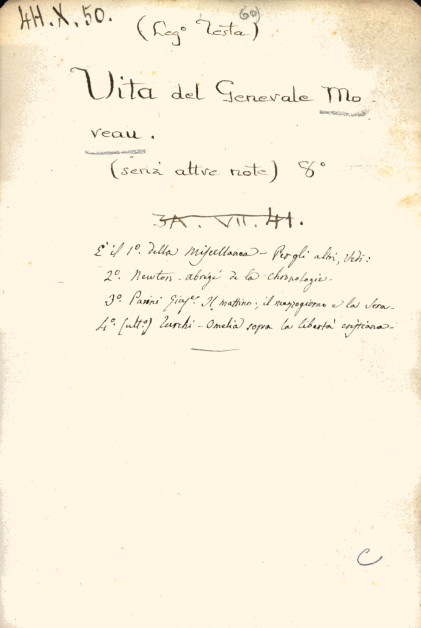 4H.X.50.
(60)
(Leg.º Testa)
Vita del Generale Mo-
reau.
(senz' altre note) 8º
3A. VII. 41.
E' il 1º. della Miscellanea - Per gli altri, Vedi:
2º. Newton - abrégé de la chronologie -
3º. Parini Gius.e Il mattino; il mezzogiorno e la Sera -
4º. (ult.º) Turchi - Omelia sopra la libertà cristiana -
C